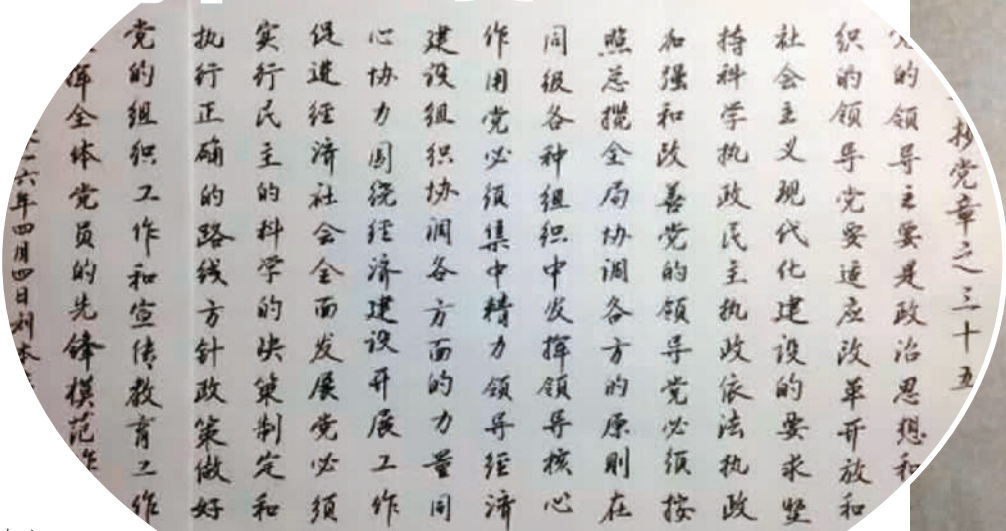 抄党章之三十五
的领导主要是政治思想和
织的领导党要适应改革开放和
社会主义现代化建设的要求坚
持科学执政民主执政依法执政
加强和改善党的领导党必须按
照总揽全局协调各方的原则在
同级各种组织中发挥领导核心
作用党必须集中精力领导经济
建设组织协调各方面的力量同
心协力围绕经济建设开展工作
促进经济社会全面发展党必须
实行民主的科学的决策制定和
执行正确的路线方针政策做好
党的组织工作和宣传教育工作
挥全体党员的先锋模范作
一六年四月四日刘本